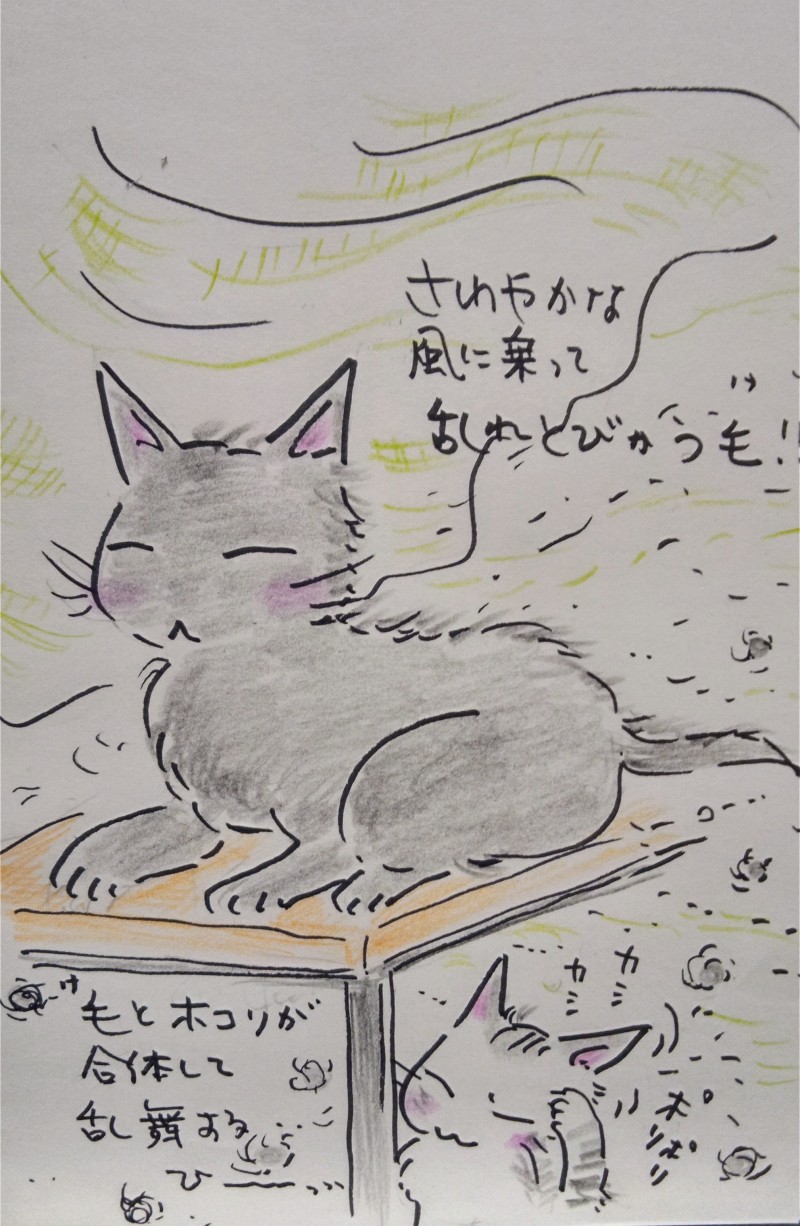 さわやかな
風に乗って
乱れとびかう毛!!
け
カミ
カミ
ポリ
ポリ
け
毛とホコリが
合体して
乱舞する
ひーーっ